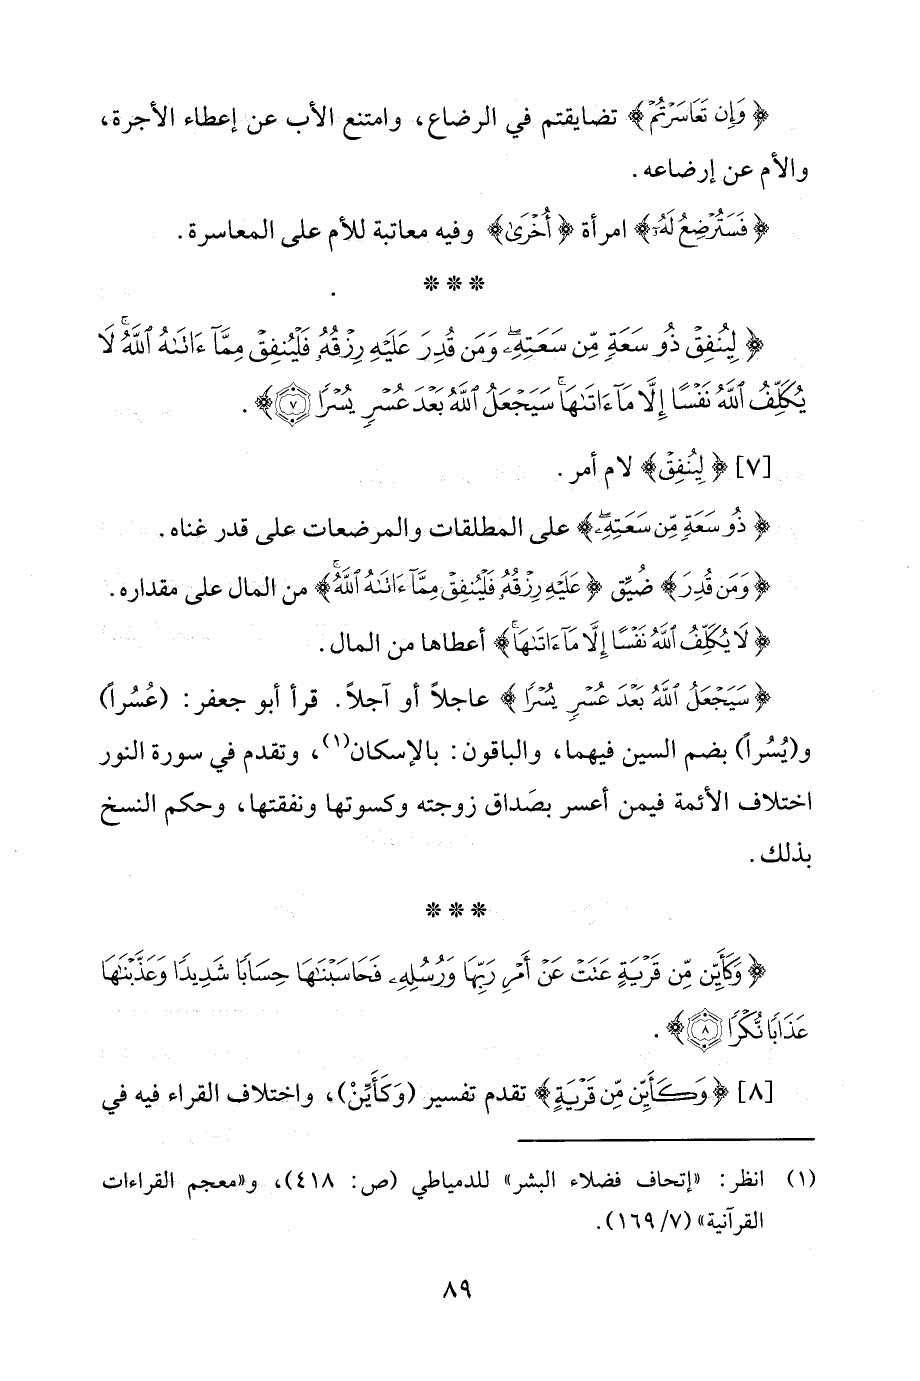 ﴿ وَإِن تَعَاسَرْتُمْ ﴾ تضايقتم في الرضاع، وامتنع الأب عن إعطاء الأجرة،
والأم عن إرضاعه.
﴿ فَسَتُرْضِعُ لَهُۥٓ ﴾ امرأة ﴿ أُخْرَىٰ ﴾ وفيه معاتبة للأم على المعاسرة.
* * *
﴿ لِيُنفِقْ ذُو سَعَةٍ مِّن سَعَتِهِۦۖ وَمَن قُدِرَ عَلَيْهِ رِزْقُهُۥ فَلْيُنفِقْ مِمَّآ ءَاتَىٰهُ ٱللَّهُۚ لَا
يُكَلِّفُ ٱللَّهُ نَفْسًا إِلَّا مَآ ءَاتَىٰهَاۚ سَيَجْعَلُ ٱللَّهُ بَعْدَ عُسْرٍ يُسْرًا ٧ ﴾.
[٧] ﴿ لِيُنفِقْ ﴾ لام أمر.
﴿ ذُو سَعَةٍ مِّن سَعَتِهِۦۖ ﴾ على المطلقات والمرضعات على قدر غناه.
﴿ وَمَن قُدِرَ ﴾ ضُيِّق ﴿ عَلَيْهِ رِزْقُهُۥ فَلْيُنفِقْ مِمَّآ ءَاتَىٰهُ ٱللَّهُۚ ﴾ من المال على مقداره.
﴿ لَا يُكَلِّفُ ٱللَّهُ نَفْسًا إِلَّا مَآ ءَاتَىٰهَاۚ ﴾ أعطاها من المال.
﴿ سَيَجْعَلُ ٱللَّهُ بَعْدَ عُسْرٍ يُسْرًا ﴾ عاجلاً أو آجلاً. قرأ أبو جعفر: (عُسُراً)
و(يُسُراً) بضم السين فيهما، والباقون: بالإسكان(١)، وتقدم في سورة النور
اختلاف الأئمة فيمن أعسر بصَداق زوجته وكسوتها ونفقتها، وحكم النسخ
بذلك.
* * *
﴿ وَكَأَيِّن مِّن قَرْيَةٍ عَتَتْ عَنْ أَمْرِ رَبِّهَا وَرُسُلِهِۦ فَحَاسَبْنَٰهَا حِسَابًا شَدِيدًا وَعَذَّبْنَٰهَا
عَذَابًا نُّكْرًا ٨ ﴾.
[٨] ﴿ وَكَأَيِّن مِّن قَرْيَةٍ ﴾ تقدم تفسير (وَكَأَيِّنْ)، واختلاف القراء فيه في
(١) انظر: «إتحاف فضلاء البشر» للدمياطي (ص: ٤١٨)، و«معجم القراءات
القرآنية» (٧/ ١٦٩).
٨٩